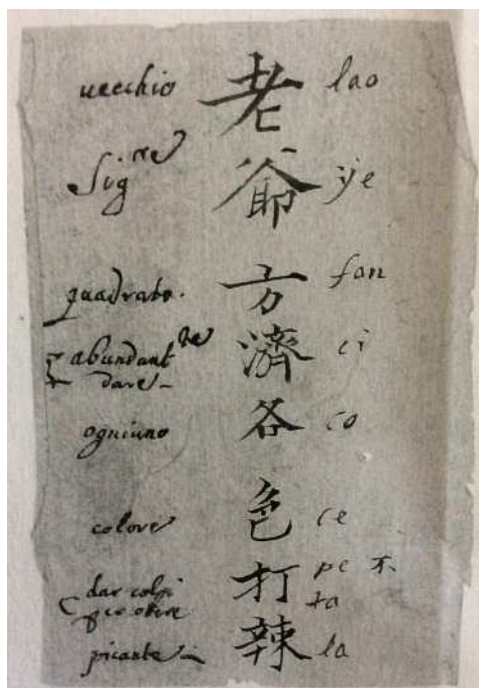 uecchio 老 lao
Sig^re 爺 ye
quadrato. 方 fan
abundant^te 濟 ci
dare
ogniuno 各 co
colore 色 ce
dar colpi 打 pe 不
per ta
picante 辣 la